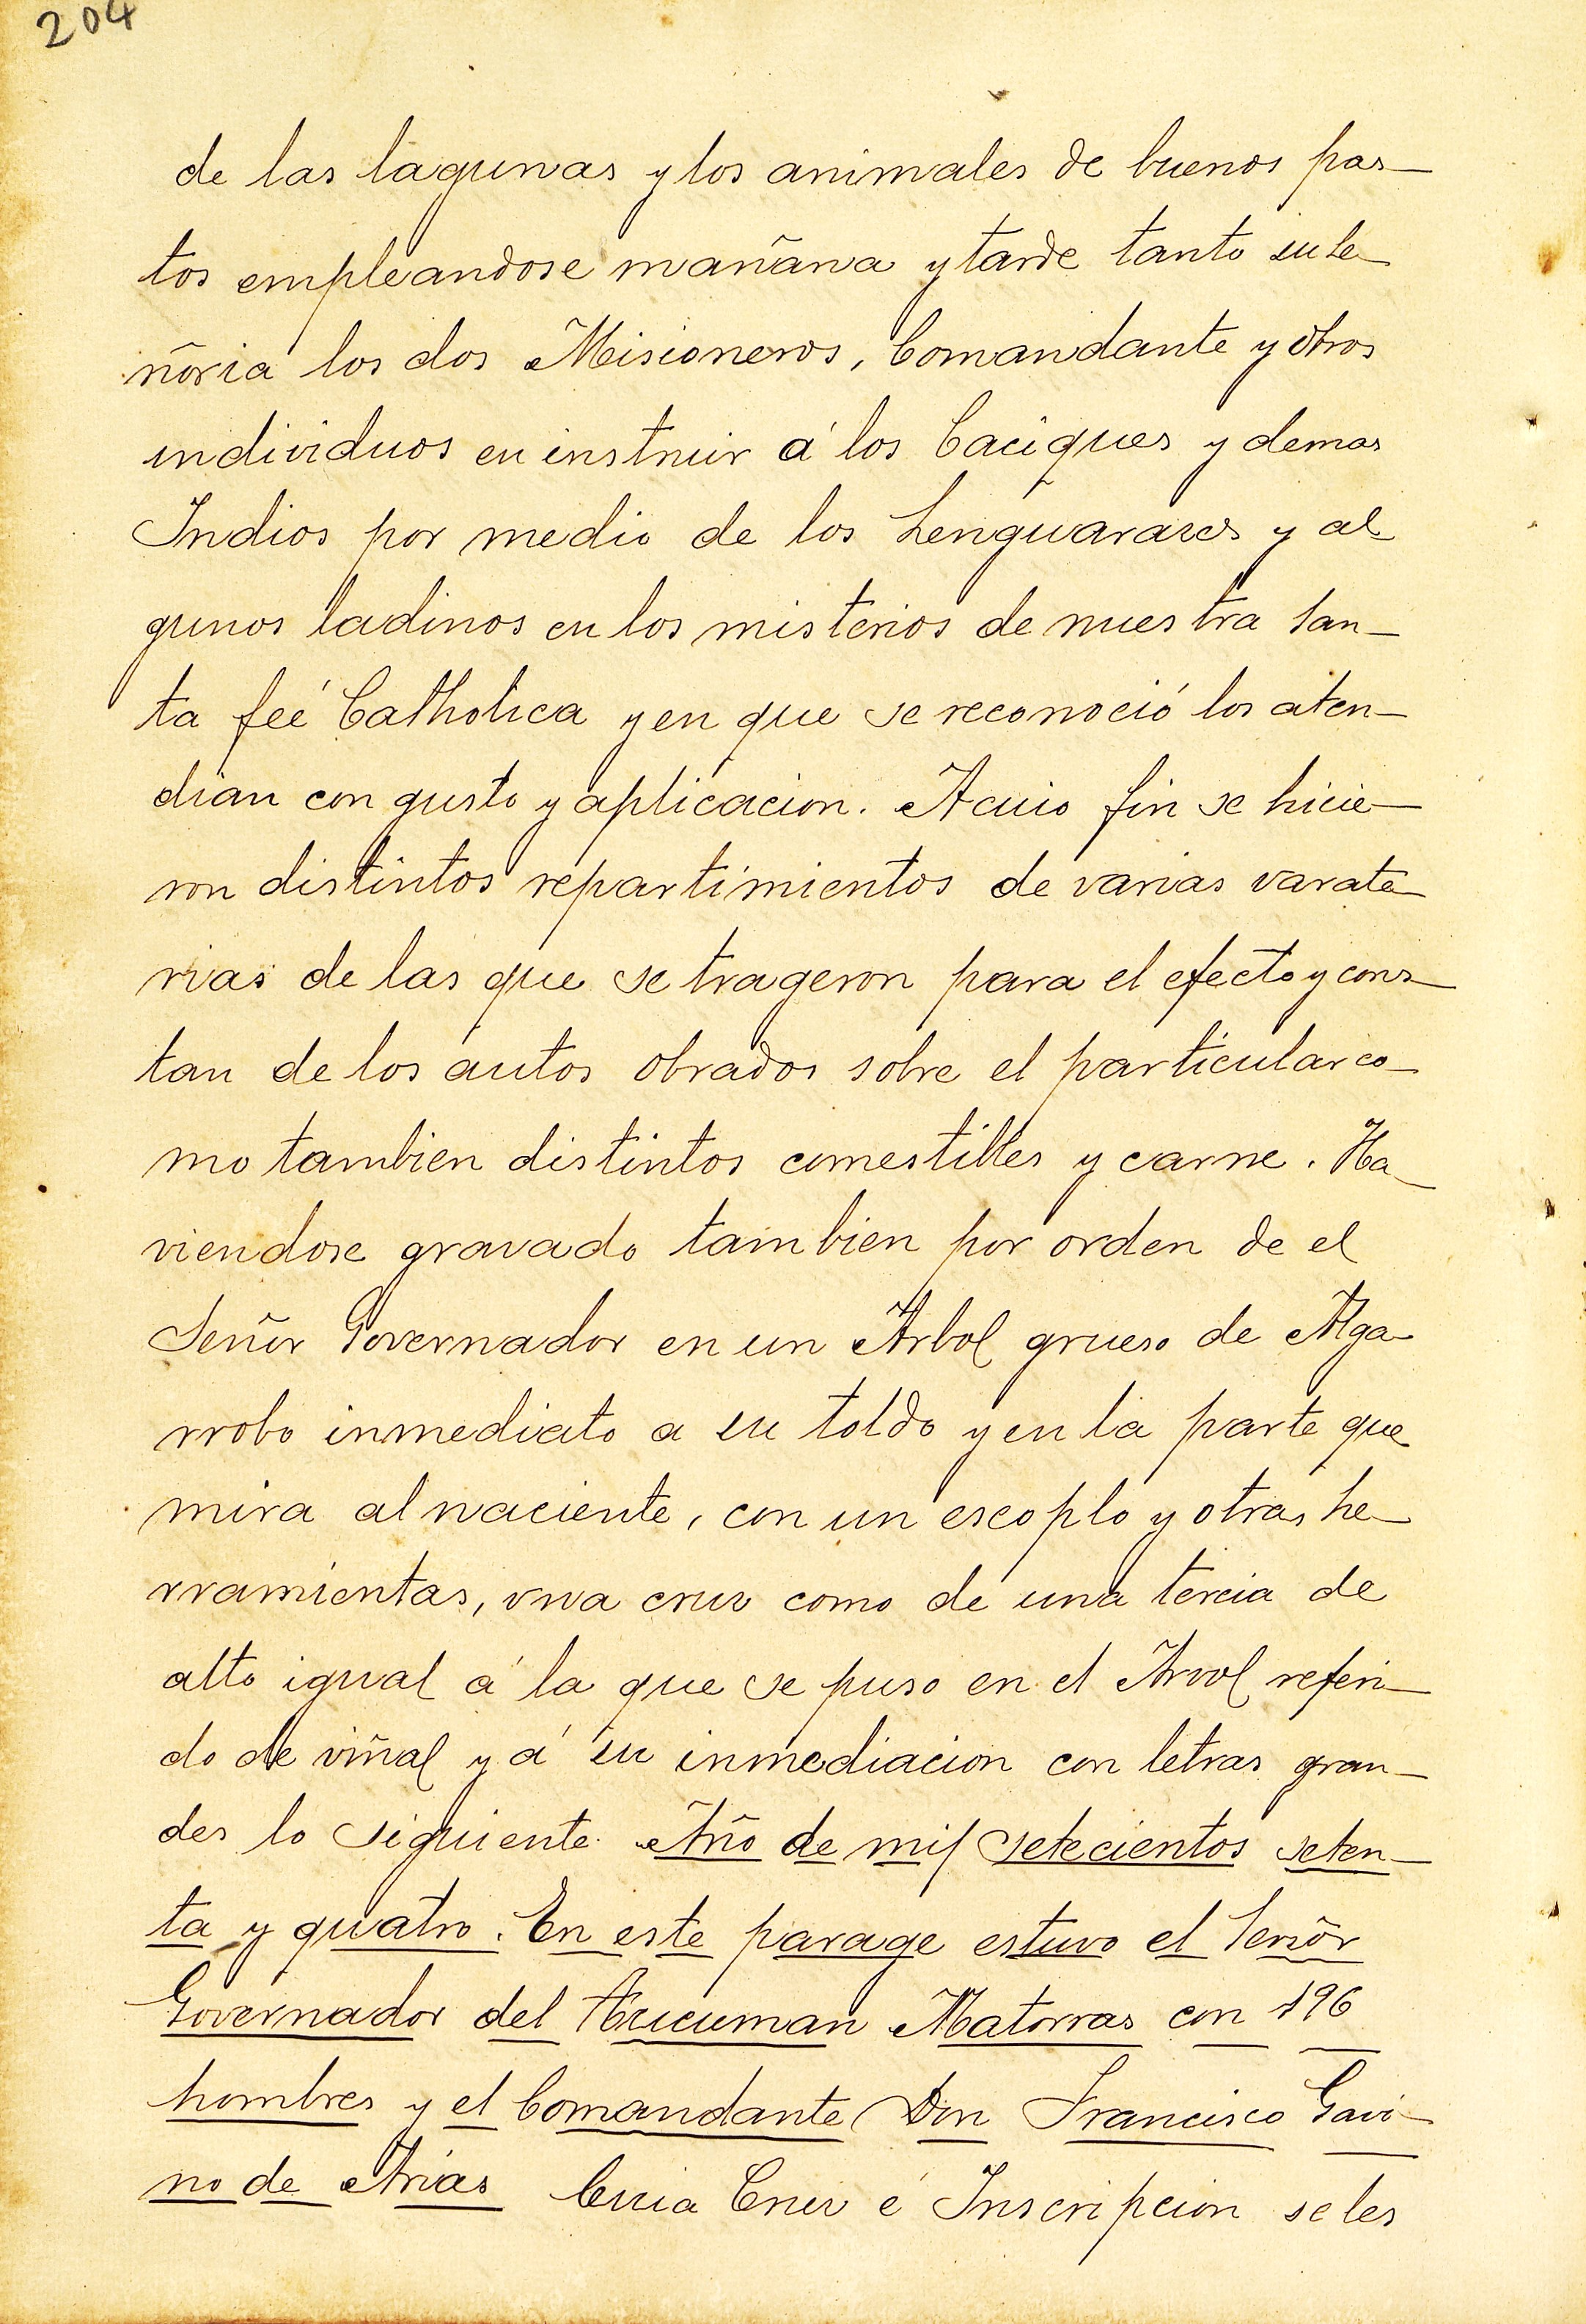 204
de las lagunas y los animales de buenos pas-
tos empleandose mañana y tarde tanto su se-
ñoria los dos Misioneros, Comandante y otros
individuos en instruir á los Caciques y demas
Indios por medio de los Lenguarazes y al-
gunos ladinos en los misterios de nuestra San-
ta feé Catholica y en que se reconoció los aten-
dian con gusto y aplicacion. A cuio fin se hicie-
ron distintos repartimientos de varias varate-
rias de las que se trageron para el efecto y cons-
tan de los autos obrados sobre el particular co-
mo tambien distintos comestibles y carne. Ha-
viendose gravado tambien por orden de el
Señor Governador en un Arbol grueso de Alga-
rrobo inmediato a su toldo y en la parte que
mira al naciente, con un escoplo y otras he-
rramientas, una cruz como de una tercia de
alto igual á la que se puso en el Arvol referi-
do de viñal y á su inmediacion con letras gran-
des lo siguiente. Año de mil setecientos seten-
ta y quatro. En este parage estuvo el Señor
Governador del Tucuman Matorras con 196
hombres y el Comandante Don Francisco Gavi-
no de Arias Cuia Cruz é Inscripcion se les